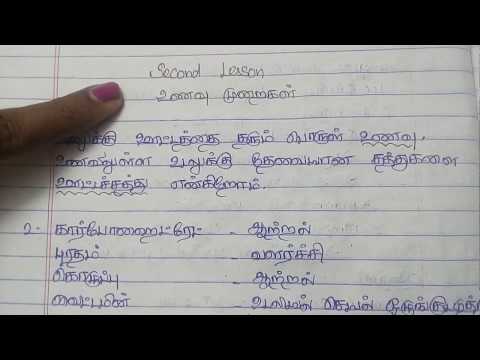 Second Lesson
உணவு முறைகள்
உடலுக்கு ஊட்டத்தை தரும் பொருள் உணவு.
உணவிலுள்ள உடலுக்கு தேவையான சத்துகளை
ஊட்டச்சத்து என்கிறோம்.
2- கார்போஹைட்ரேட் - ஆற்றல்
புரதம் - வளர்ச்சி
கொழுப்பு - ஆற்றல்
வைட்டமின் - உடலின் செயல்